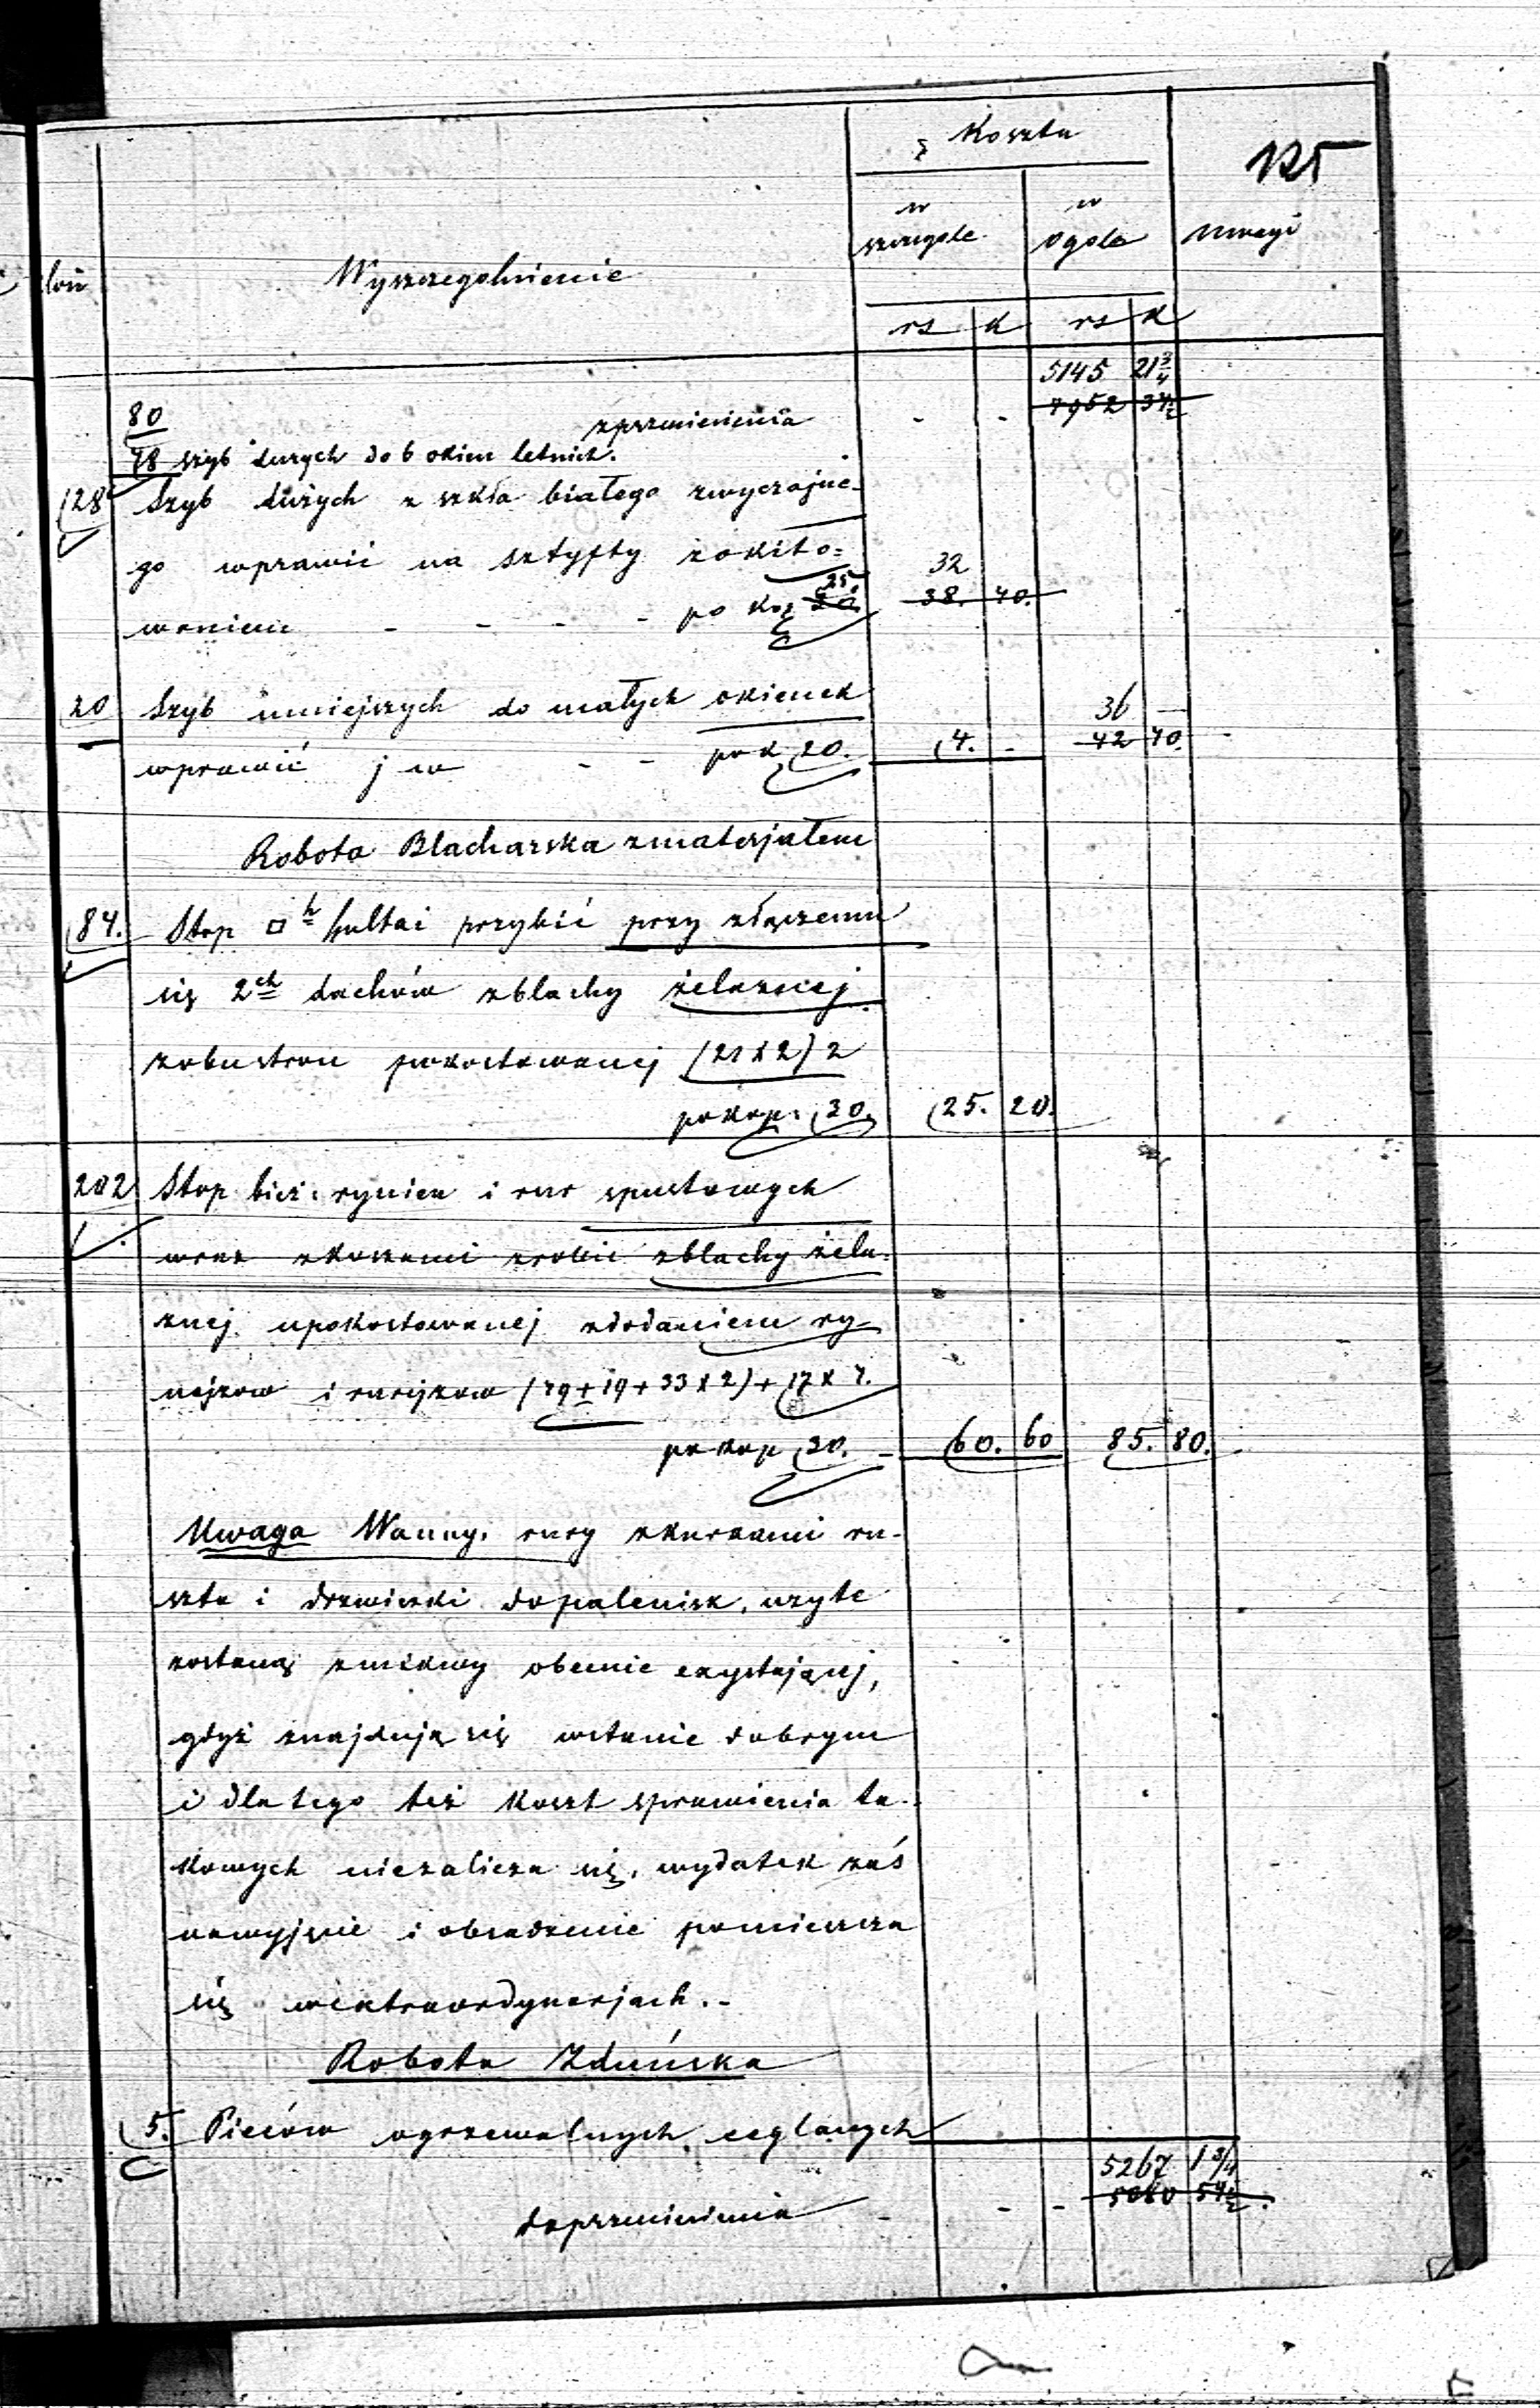 Koszta
125
w szczególe
w ogóle
Uwagi
łość
Wyszczególnienie
rs k rs k
5145 21 3/4
7952 37 1/2
80 zprzeniesienia - -
48 szyb dużych do 6 okien letnich.
128 Szyb dużych z szkła białego zwyczajne-
go wprawić na sztyfty zokito=
32
waniem - - - - po kop 25 30 38. 40.
20 Szyb mniejszych do małych okienek
36 —
wprawić j w - - po k 20. 4. - 42 40.
Robota Blacharska zmaterjałem
84. Stop □h hultai przybić przy złączeniu
się 2ch dachów zblachy żelaznej
zobustron pokostowanej (21x2)2
po kop. 30. 25. 20.
202 Stop bież: rynien i rur spustowych
wraz zkoszami zrobić zblachy żela-
znej upokostowanej zdodaniem ry-
najzow i rurajzow (79+19+33x2)+17x7.
po kop 30. - 60. 60 85. 80.
Uwaga Wanny, rury zkurkami ru-
szta i drzwiczki dopalenisk, użyte
zostaną zmikwy obecnie exystującej,
gdyż znajdują się wstanie dobrym
i dla tego też koszt sprawienia ta-
kowych niezalicza się, wydatek zaś
nawyjęcie i obsadzenie pomieszcza
się wextraordynarjach.-
Robota Zduńska
5. Pieców ogrzewalnych ceglanych
5267 1 3/4
doprzeniesienia - - - 5080 57 1/2